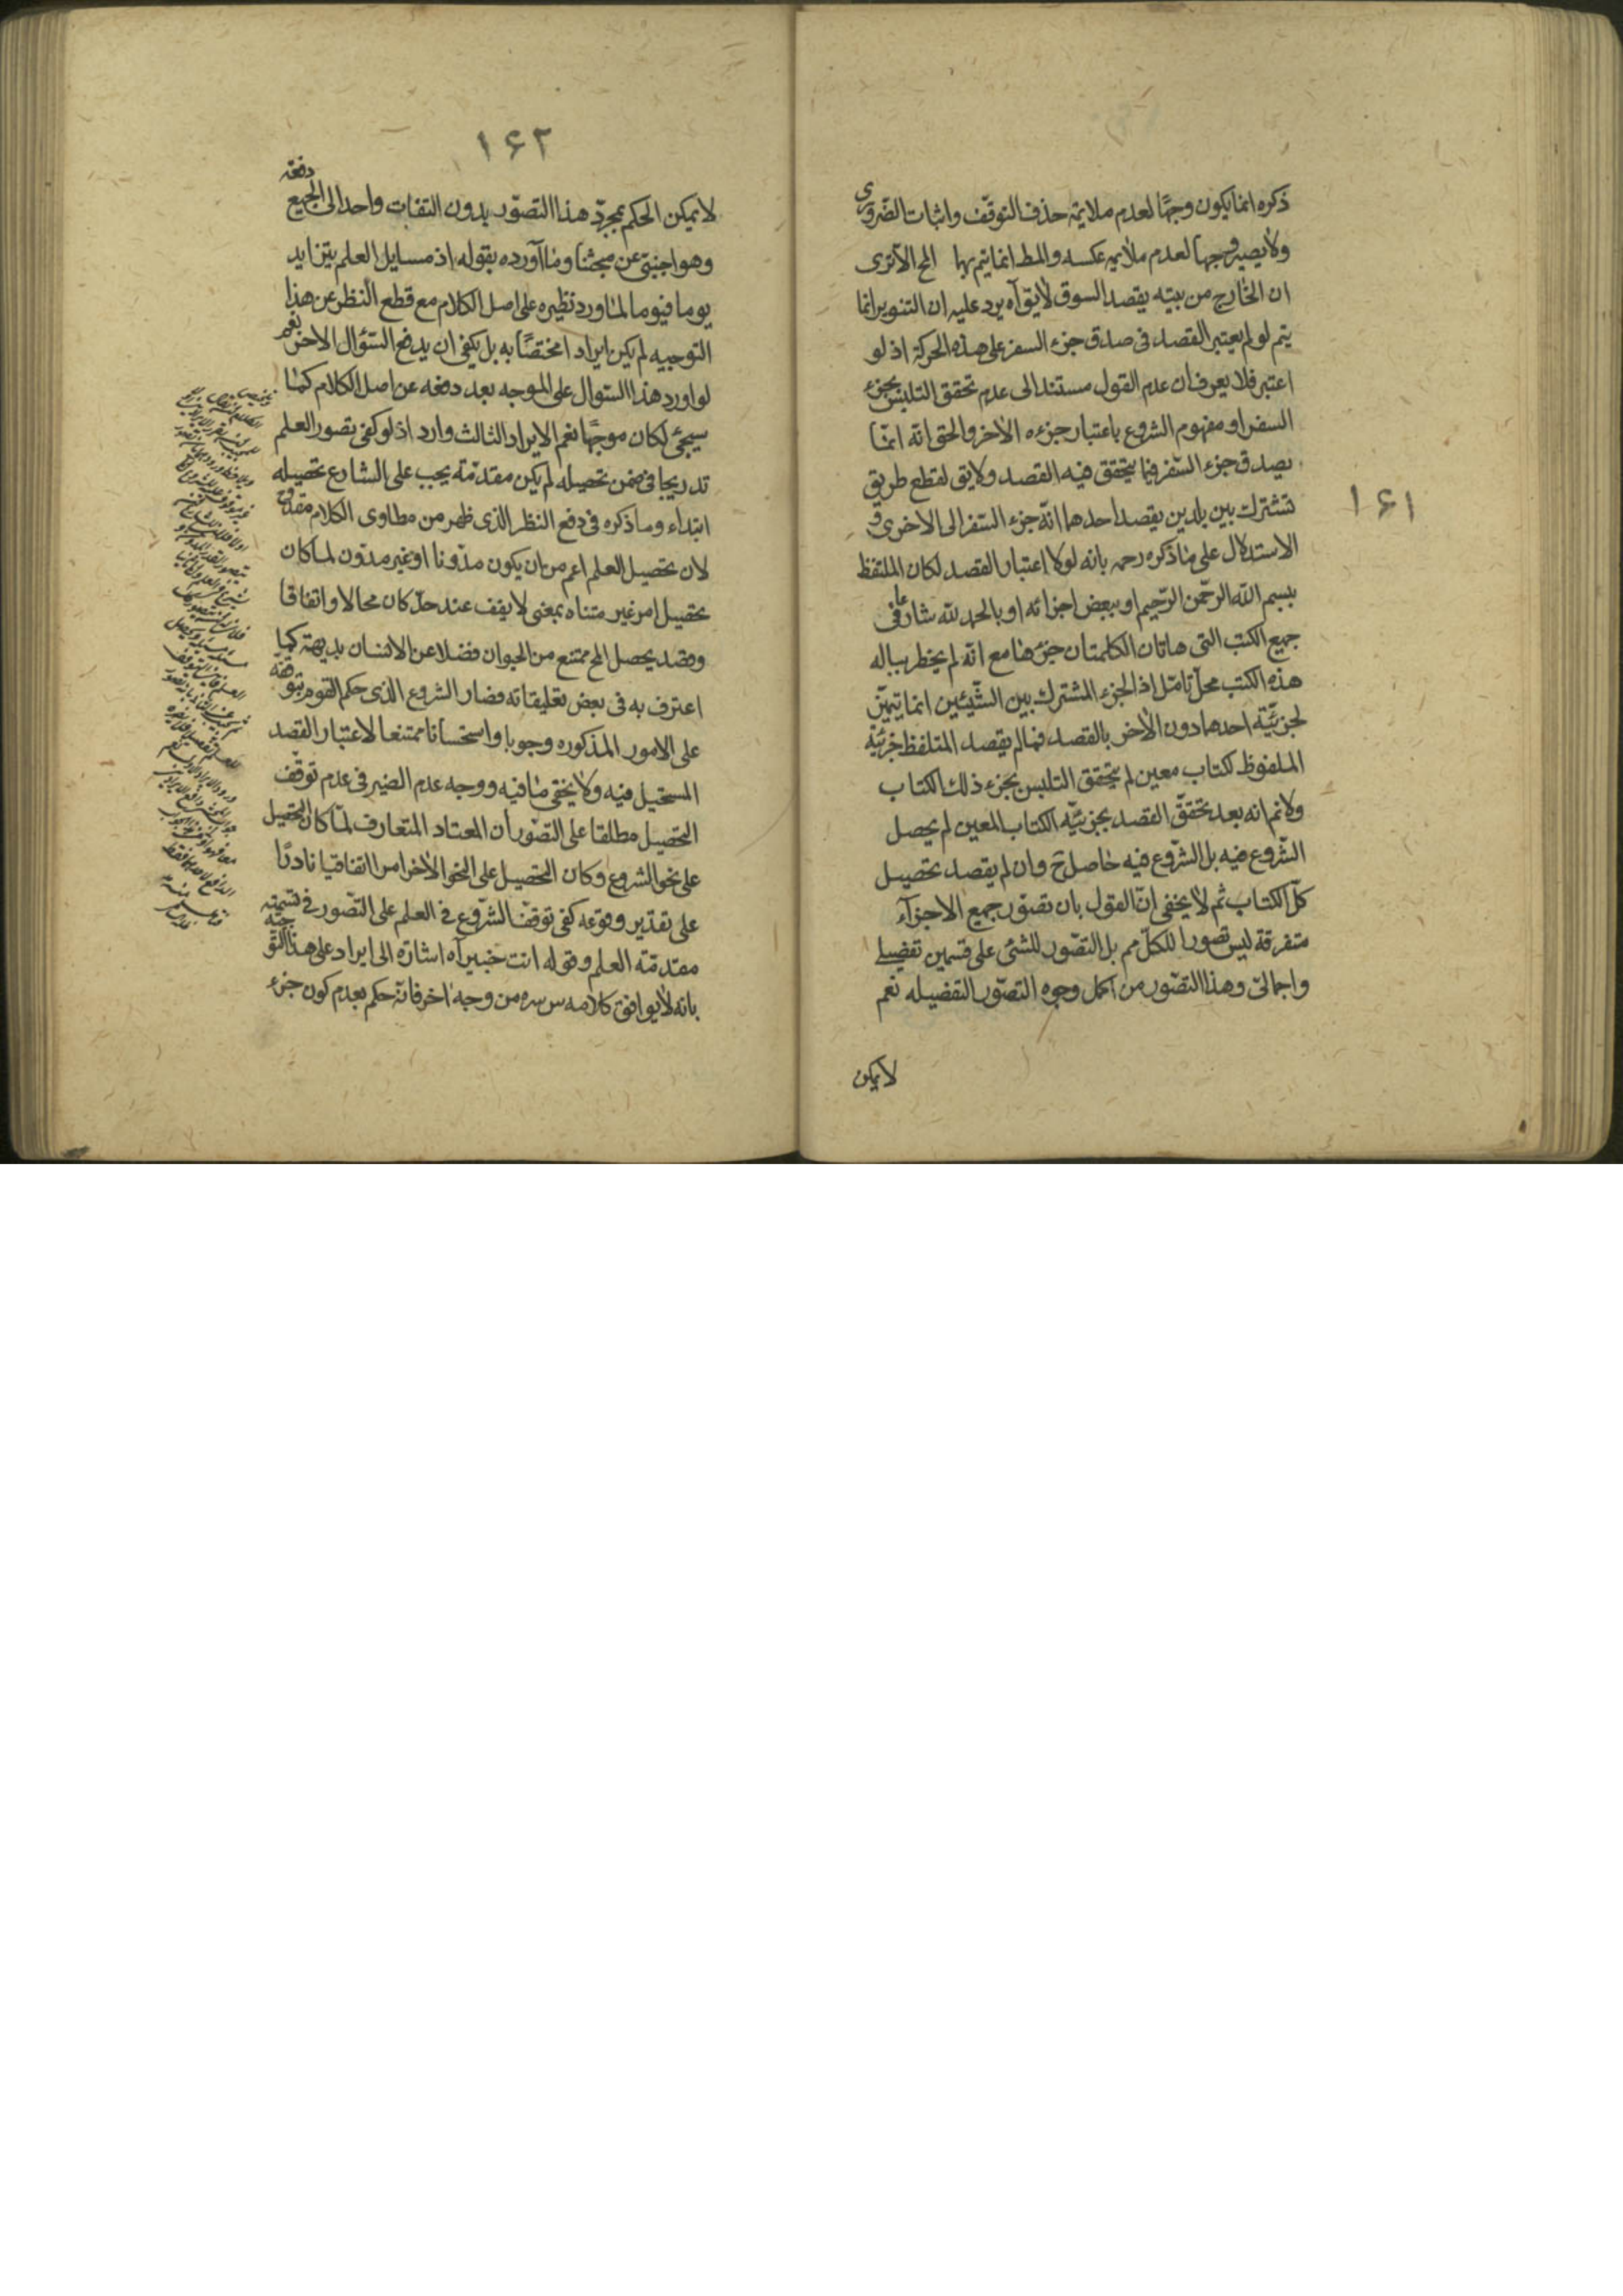 ١۶١
ذكره انما يكون وجها لعدم ملايمة حذف التوقف واثبات الضرورى
ولا يصير وجها لعدم ملايمة عكسه والمط انما يتم بها الخ الا ترى
ان الخارج من بيته يقصد السوق لايق آه يرد عليه ان التنوير انما
يتم لو لم يعتبر القصد فى صدق جزء السفر على هذه الحركة اذ لو
اعتبر فلا يعرف ان عدم القول مستند الى عدم تحقق التلبس بجزء
السفر او مفهوم الشروع باعتبار جزءه الاخر والحق انه انما
يصدق جزء السفر فيما يتحقق فيه القصد ولا يق لقطع طريق
تشترك بين بلدين يقصد احدهما انه جزء السفر الى الاخرى و
الاستدلال على ما ذكره رحمه بانه لولا اعتبار القصد لكان الملتفظ
ببسم الله الرحمن الرحيم او ببعض اجزائه او بالحمد لله شارعا فى
جميع الكتب التى هاتان الكلمتان جزءها مع انه لم يخطر بباله
هذه الكتب محل تامل اذ الجزء المشترك بين الشيئين انما يتميز
لجزئية احدهما دون الاخر بالقصد فما لم يقصد المتلفظ جزئية
الملفوظ لكتاب معين لم يتحقق التلبس بجزء ذلك الكتاب
ولانم انه بعد تحقق القصد بجزئية الكتاب المعين لم يحصل
الشروع فيه بل الشروع فيه حاصل ح وان لم يقصد تحصيل
كل الكتاب ثم لا يخفى ان القول بان تصور جميع الاجزآء
متفرقة ليس تصورا للكل مم بل التصور للشئ على قسمين تفصيلى
واجمالى وهذا التصور من اكمل وجوه التصور التفضيله نعم
لا يمكن
١۶٢
لا يمكن الحكم بمجرد هذا التصور بدون التفات واحد الى الجميع دفعة
وهو اجنبى عن مبحثنا وما آورده بقوله اذ مسايل العلم يتزايد
يوما فيوما لما ورد نظيره على اصل الكلام مع قطع النظر عن هذا
التوجيه لم يكن ايراد ا مختصا به بل يكفى ان يدفع السؤال الاخر نعم
لو اورد هذا السئوال على الموجه بعد دفعه عن اصل الكلام كما
سيجئ لكان موجها نعم الايراد الثالث وارد اذ لو كفى تصور العلم
تدريجا فى ضمن تحصيله لم يكن مقدمة يجب على الشارع تحصيله
ابتداء وما ذكره فى دفع النظر الذى ظهر من مطاوى الكلام مقدوح
لان تحصيل العلم اعم من ان يكون مدونا او غير مدون لما كان
تحصيل امر غير متناه بمعنى لا يقف عند حد كان محالا واتفاقا
وقصد يحصل المح ممتنع من الحيوان فضلا عن الانسان بديهة كما
اعترف به فى بعض تعليقاته فصار الشروع الذى حكم القوم بتوقفه
على الامور المذكوره وجوبا واستحسانا ممتنعا لاعتبار القصد
المستحيل فيه ولا يخفى ما فيه ووجه عدم الضير فى عدم توقف
التحصيل مطلقا على التصور أن المعتاد المتعارف لما كان التحصيل
على نحو الشروع وكان التحصيل على النحو الاخر امرا اتفاقيا نادرا
على تقدير وقوعه كفى توقف الشروع فى العلم على التصور فى تسميته
مقدمة العلم وقوله انت خبير آه اشارة الى ايراد على هذا التوجيه
بانه لا يوافق كلامه س سره من وجه اخر فانه حكم بعدم كون جزء